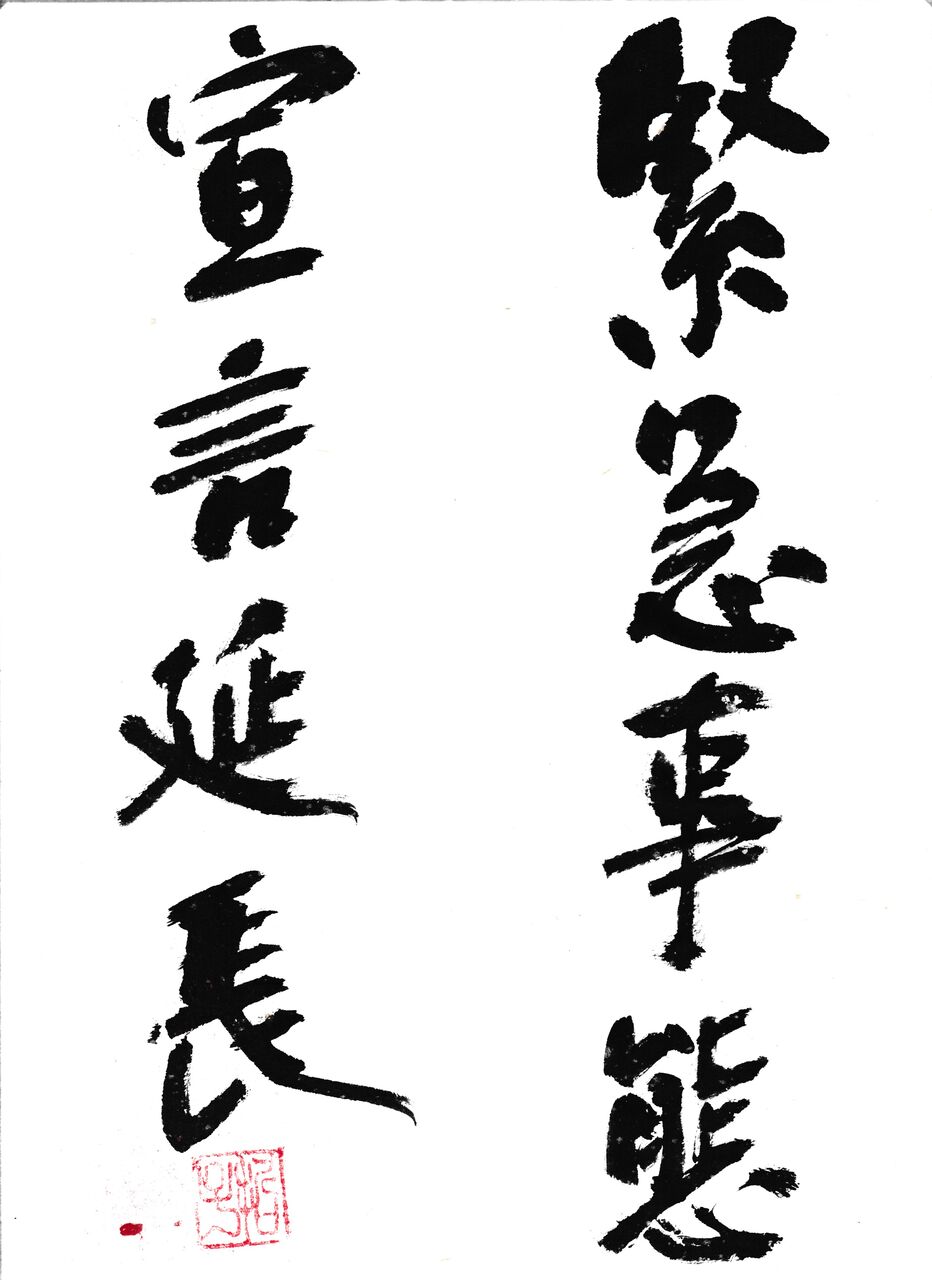 緊急事態
宣言延長